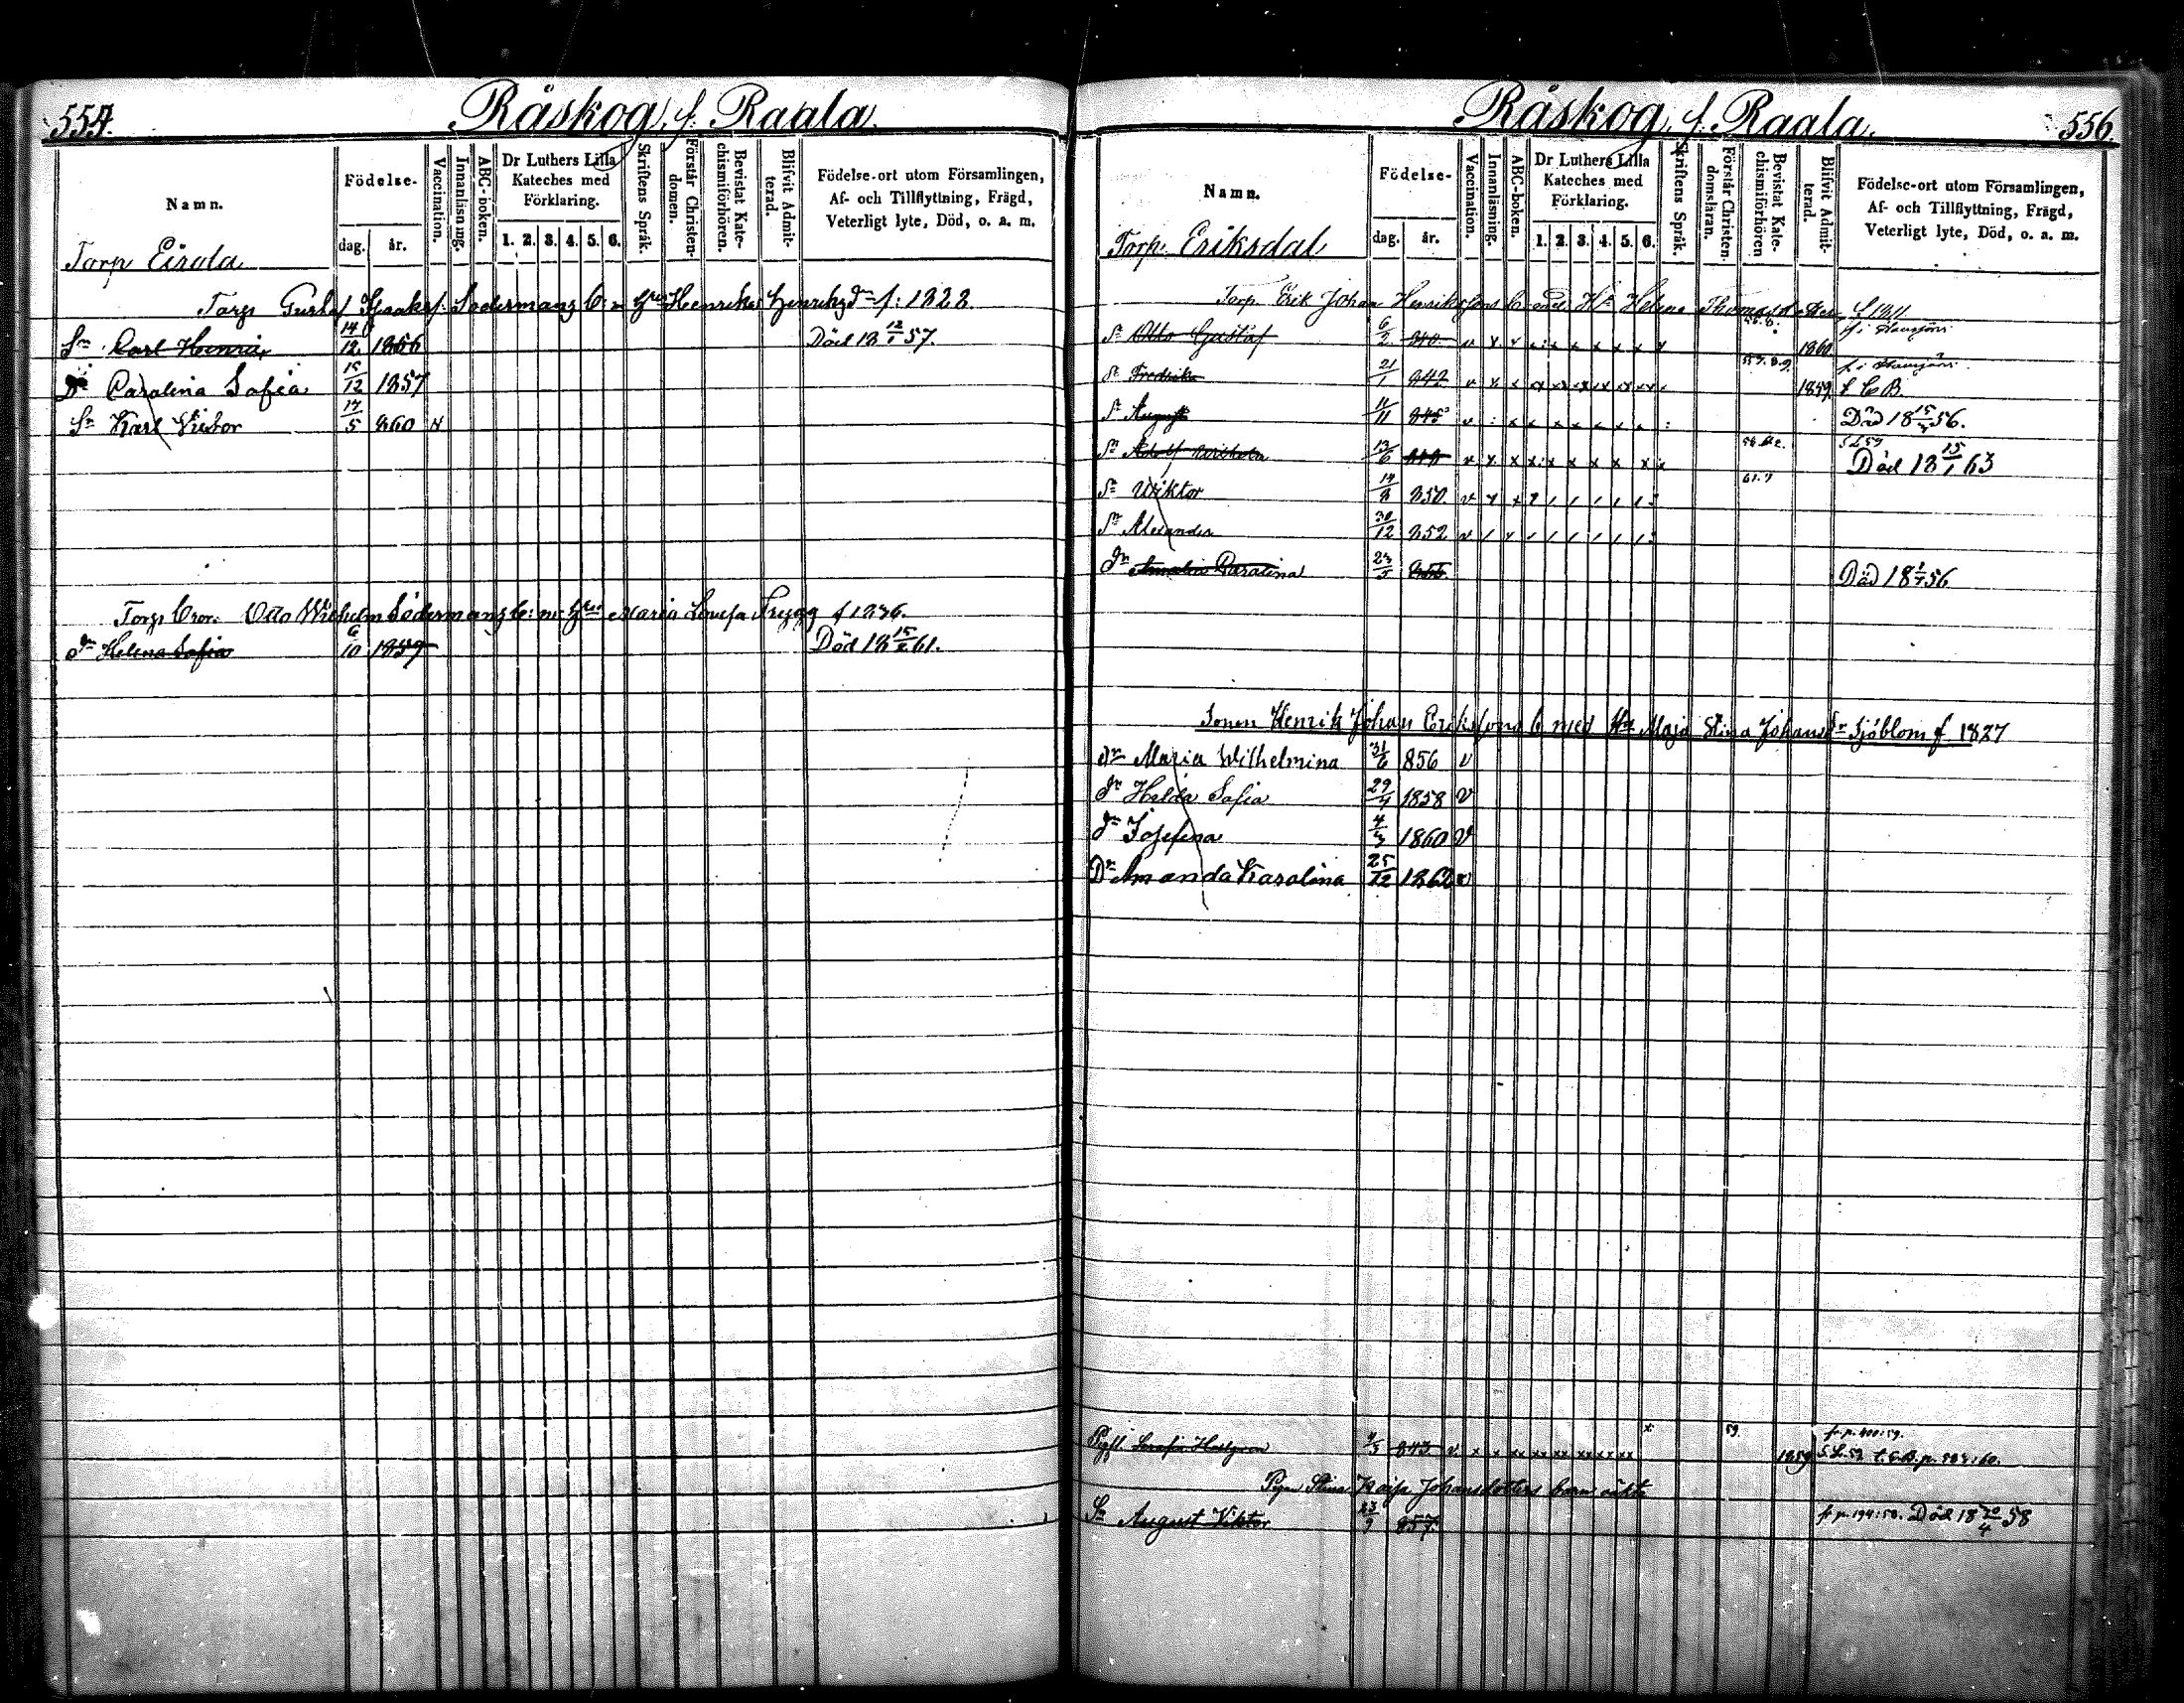 554.
Råskog, f. Raala.
Namn.
Födelse-
dag.
år.
Vaccination.
Innanläsning.
ABC-boken.
Dr Luthers Lilla
Kateches med
Förklaring.
1. 2. 3. 4. 5. 6.
Skriftens Språk.
Förstår Christen-
domen.
Bevistat Kate-
chismiförhören.
Blifvit Admit-
terad.
Födelse-ort utom Församlingen,
Af- och Tillflyttning, Frägd,
Veterligt lyte, Död, o. a. m.
Torp Eirola
Torp. Gustaf Isaaksf. Södermans b: m Hu Henrika Henriksdr f: 1828.
Sn Carl Henrik 14/12 1856 Död 18 12/1 57.
Dr Carolina Sofia 15/12 1857
Sn Karl Victor 17/5 860
Torp. Otto Wilhelm Södermans b: m Hu Maria Lovisa Frygg f 1836.
Dr Helena Sofia 6/10 1859 Död 18 15/2 61.
Råskog, f. Raala.
556.
Namn.
Födelse-
dag.
år.
Vaccination.
Innanläsning.
ABC-boken.
Dr Luthers Lilla
Kateches med
Förklaring.
1. 2. 3. 4. 5. 6.
Skriftens Språk.
Förstår Christen-
domsläran.
Bevistat Kate-
chismiförhören
Blifvit Admit-
terad.
Födelse-ort utom Församlingen,
Af- och Tillflyttning, Frägd,
Veterligt lyte, Död, o. a. m.
Torp. Eriksdal
Torp. Erik Johan Henrikssons b med Hu Helena Thomasdotter f. 1811
Sn Otto Gustaf 6/2 840 v x x x x x x x x x 1860
Sr Fredrika 21/1 842 v x x x x x x x x 57.8.9. 1859 C B.
Sn August 11/11 845 v Död 18 15/3 56.
Sn Adolf Wilhelm 13/6 848 v x x x x x x x x x Död 18 15/1 63
Sn Wiktor 14/8 850 v x x 61.
Sn Alexander 30/12 852 v
Dr Amalia Carolina 23/5 855 Död 18 1/7 56
Sonen Henrik Johan Erikssons b med Hu Maja Stina Johansdr Sjöblom f. 1827
Dr Maria Wilhelmina 31/6 856 v
Dr Hilda Sofia 29/4 1858 v
Dr Josefina 4/3 1860 v
Dr Amanda Karolina 25/12 1862 v
Serafia 843 v x x 59. 1859 fr p. 400:59.
Pigan Stina Kaisa Johansdotters barn oäkta
Sn August Viktor 23/9 857. fr p. 194:58. Död 18 20/4 58